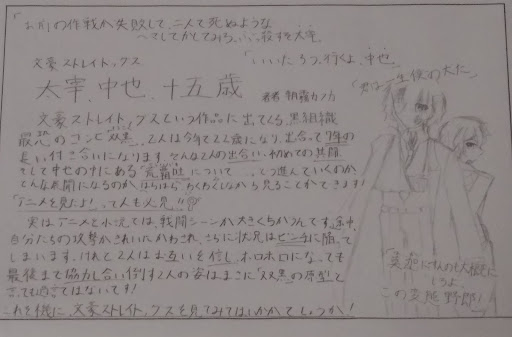 「おれの作戦が失敗して、二人で死ぬような
ヘマしてかしてみろ、ぶっ殺すぞ太宰。
「いいだろう、行くよ、中也。
文豪ストレイドッグス
太宰、中也、十五歳
著者 朝霧カフカ
文豪ストレイドッグスという作品に出てくる黒組織
最恐のコンビ"双黒"、2人は今年で22歳になり、出会って7年の
長い付き合いになります。そんな2人の出会い・初めての共闘
そして中也の中にある"荒覇吐"について、どう進んでいくのか
どんな展開になるのか はらはら、わくわくしながら見ることができます!
「アニメを見たよ!」って人も必見!!
実はアニメと小説では、戦闘シーンが大きくちがうんです。途中、
自分たちの攻撃が されさらに状況はピンチに陥って
しまいます。けれど2人はお互いを信じ、ボロボロになっても
最後まで協力し合い倒す2人の姿はまさに「双黒」の原型と
言っても過言ではないです!
これを機に、文豪ストレイドッグスを見てみてはいかがでしょうか!
「君は一生僕の犬だ」
「莫迦にすんのも大概に
しろよ、
この変態野郎!